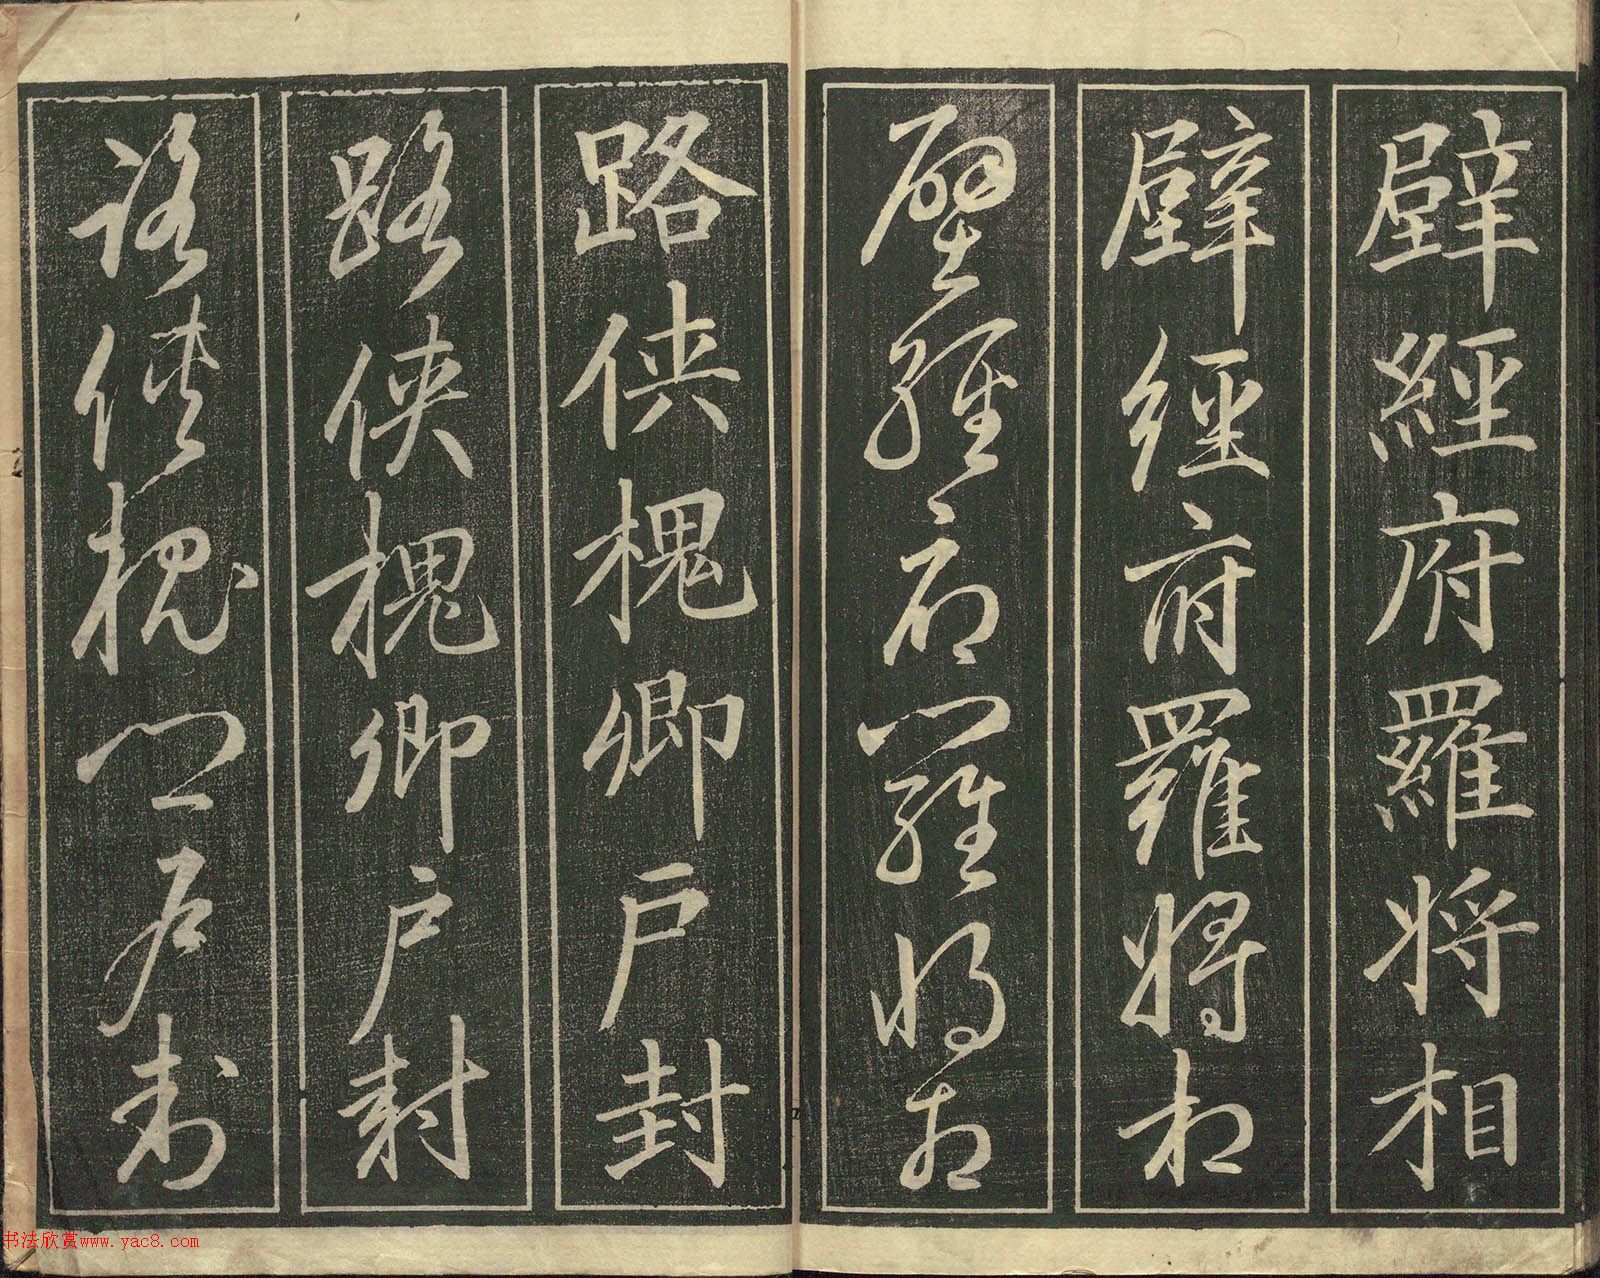 壁經府羅將相
壁經府羅將相
壁經府羅將相
路俠槐卿戶封
路俠槐卿戶封
路俠槐卿戶封
书法欣赏www.yac8.com